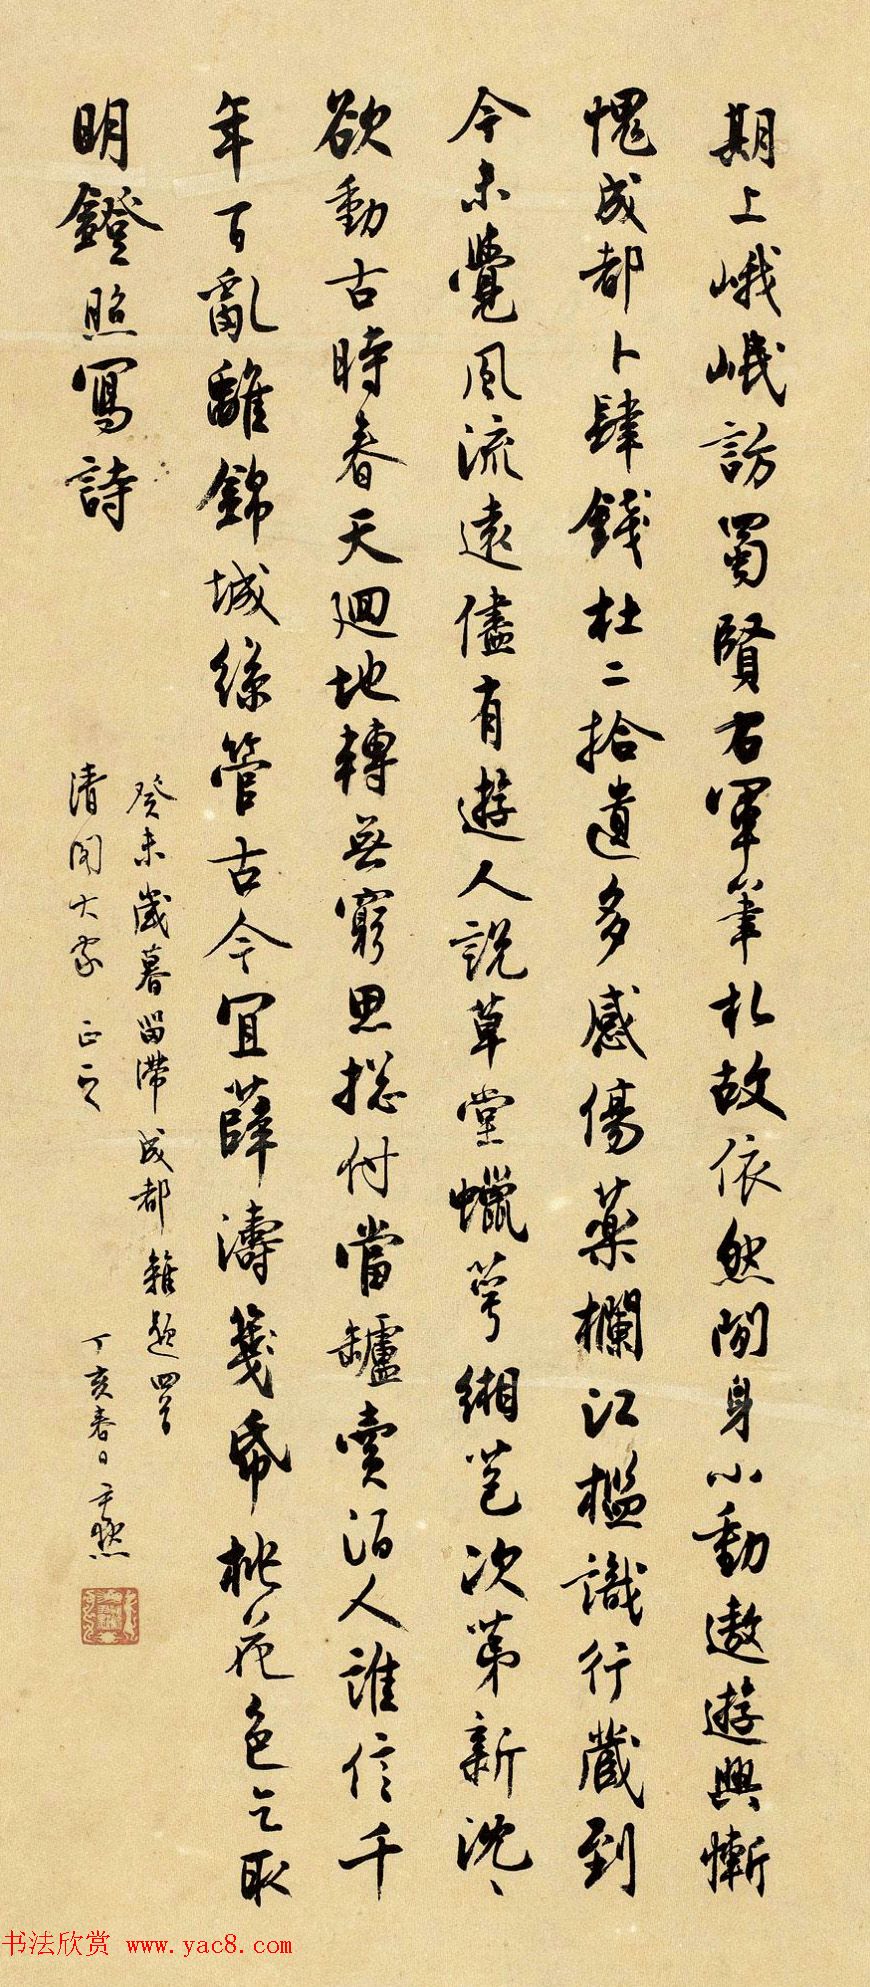 期上峨岷訪蜀賢右軍筆札故依然閒身小動遨遊興慚
愧成都卜肆錢杜二拾遺多感傷藥欄江檻識行藏到
今未覺風流遠儘有遊人說草堂蠟萼緗苞次第新沈〻
欲動古時春天迴地轉無窮思揔付當罏賣酒人誰信千
年百亂離錦城絲管古今宜薛濤箋紙桃花色乞取
明鐙照寫詩
癸未歲暮留滯成都雜題四首
清閣大家 正之
丁亥春日 尹默
书法欣赏 www.yac8.com